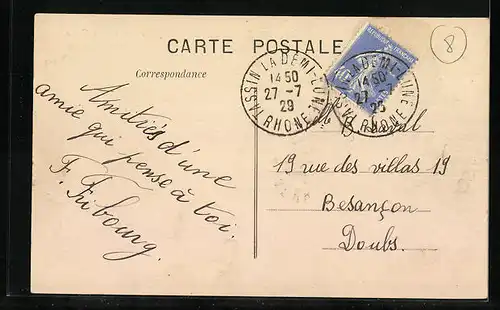 CARTE POSTALE
8
Correspondance
TASSIN LA DEMI-LUNE
14 50
27 - 7
29
RHONE
REPUBLIQUE FRANÇAISE
LA DEMI-LUNE
14 50
27 - 7
RHONE
Amitiés d'une
amie qui pense à toi.
F. Fribourg.
19 rue des villas 19
Besançon
Doubs.